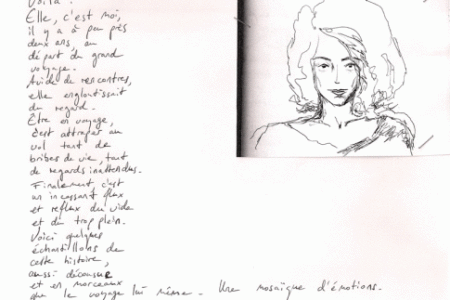 Voilà.
Elle, c'est moi,
il y a à peu près
deux ans, au
départ du grand
voyage.
Avide de rencontres,
elle engloutissait
du regard.
Être en voyage,
c'est attraper au
vol tant de
bribes de vie, tant
de regards inattendus.
Finalement, c'est
un incessant flux
et reflux du vide
et du trop plein.
Voici quelques
échantillons de
cette histoire,
aussi décousue
et en morceaux
que le voyage lui même. Une mosaïque d'émotions.